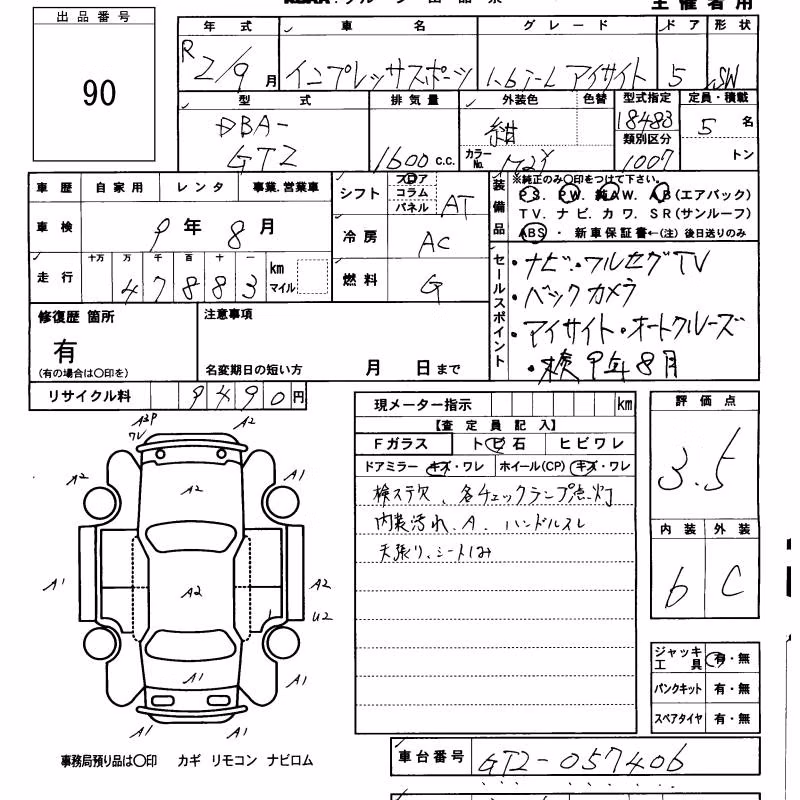 主催者用
出品番号
90
年式 車名 グレード ドア 形状
R2/9月 インプレッサスポーツ 1.6i-L アイサイト 5 SW
型式 排気量 外装色 色替 型式指定 定員・積載
DBA-GT2 1600c.c. 紺 18483 5名
カラーNo. 類別区分 1007 トン
車歴 自家用 レンタ 事業.営業車
車検 9年8月
走行 十万 万 千 百 十 一
47883 km マイル
シフト フロア コラム パネル AT
冷房 AC
燃料 G
装備品 ※純正のみ〇印をつけて下さい。
PS. PW. 純AW. AB(エアバック)
TV. ナビ. カワ. SR(サンルーフ)
ABS・新車保証書←(注)後日送りのみ
セールスポイント
・ナビ・ワルセグTV
・バックカメラ
・アイサイト・オートクルーズ
・検9年8月
修復歴 箇所
有
(有の場合は〇印を)
注意事項
名変期日の短い方 月 日まで
リサイクル料 9490円
現メーター指示 km
【査定員記入】
Fガラス トビ石 ヒビワレ
ドアミラー キズ・ワレ ホイール(CP) キズ・ワレ
検ステ欠、各チェックランプ点灯
内装汚れ、A、ハンドルスレ
天張り、シートしみ
評価点
3.5
内装 外装
b C
ジャッキ工具 有・無
パンクキット 有・無
スペアタイヤ 有・無
A2P
ワレ
A2
A2
A1
A2
A1
A2
A2
U2
A1
A1
A1
A1
A1
事務局預り品は〇印 カギ リモコン ナビロム
車台番号 GT2-057406